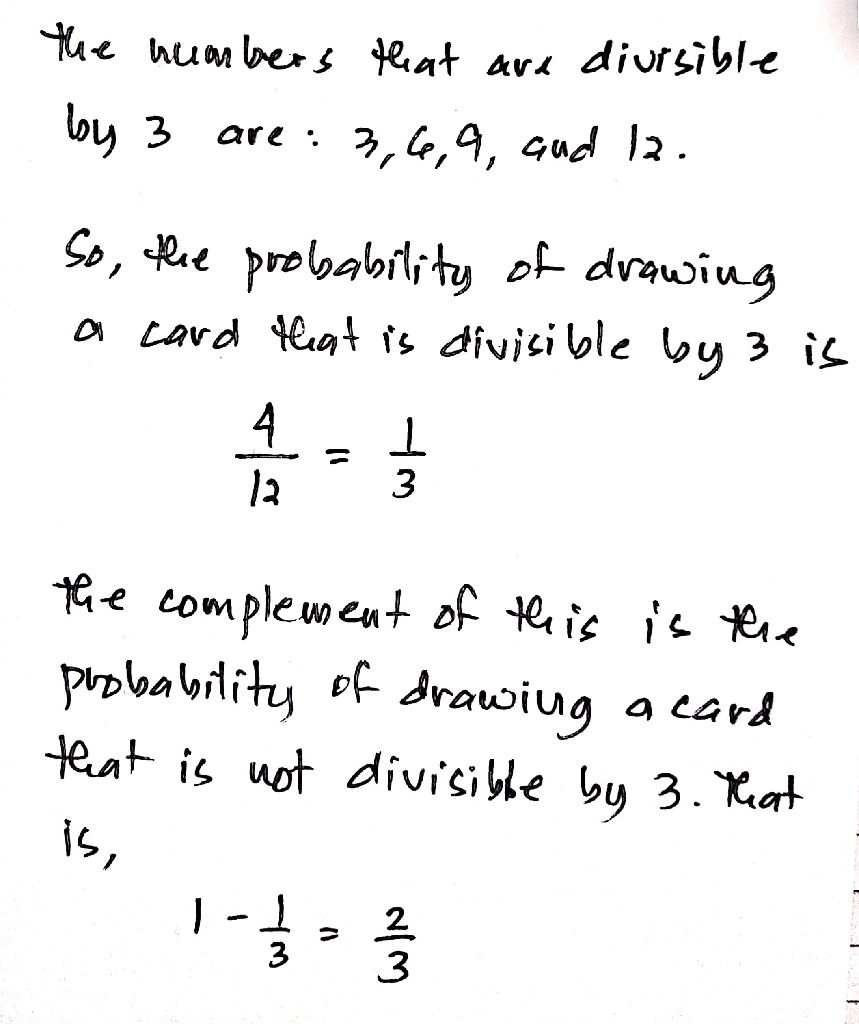 the numbers that are divisible
by 3 are: 3, 6, 9, and 12.
So, the probability of drawing
a card that is divisible by 3 is
4/12 = 1/3
the complement of this is the
probability of drawing a card
that is not divisible by 3. That
is,
1 - 1/3 = 2/3